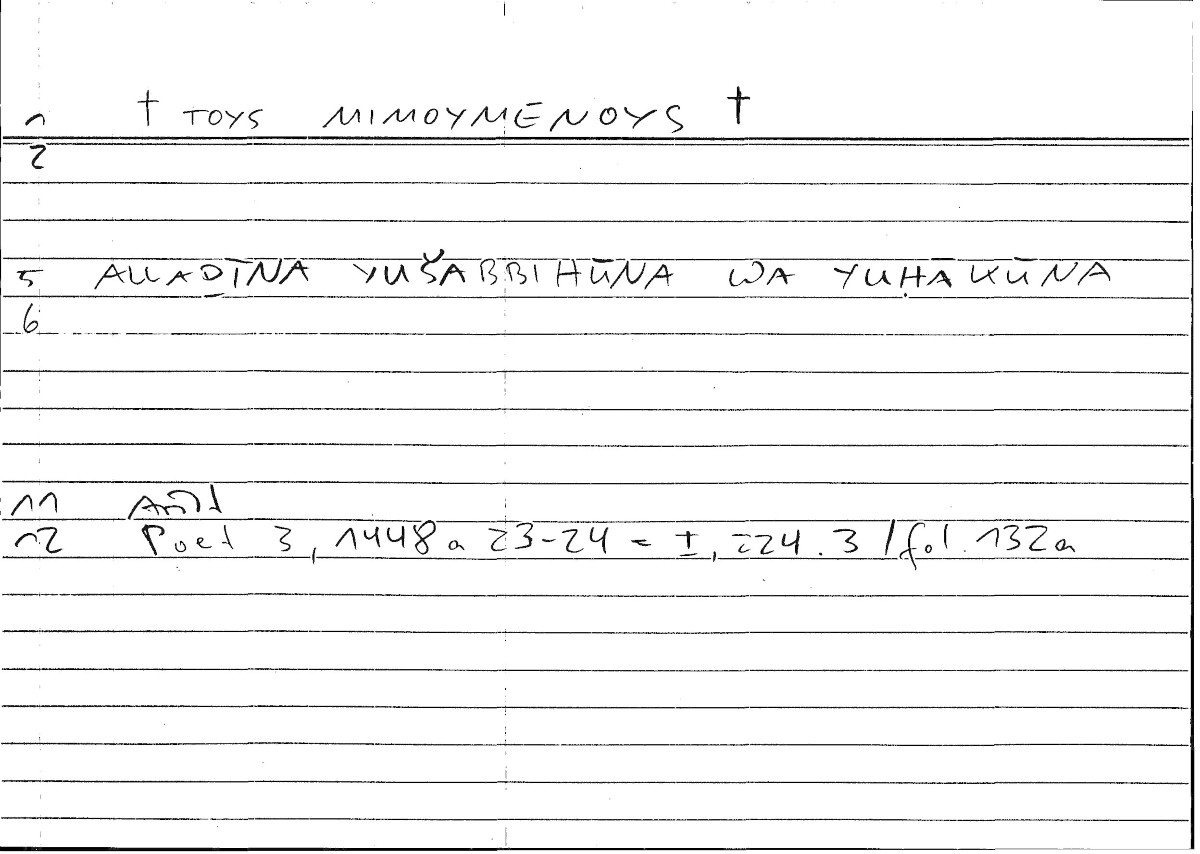 1 † TOYS MIMOYMENOYS †
2
5 ALLAḎĪNA YUŠABBIHŪNA WA YUḤĀKŪNA
6
11 Arist
12 Poet 3, 1448a 23-24 = ±, 224.3 / fol. 132a